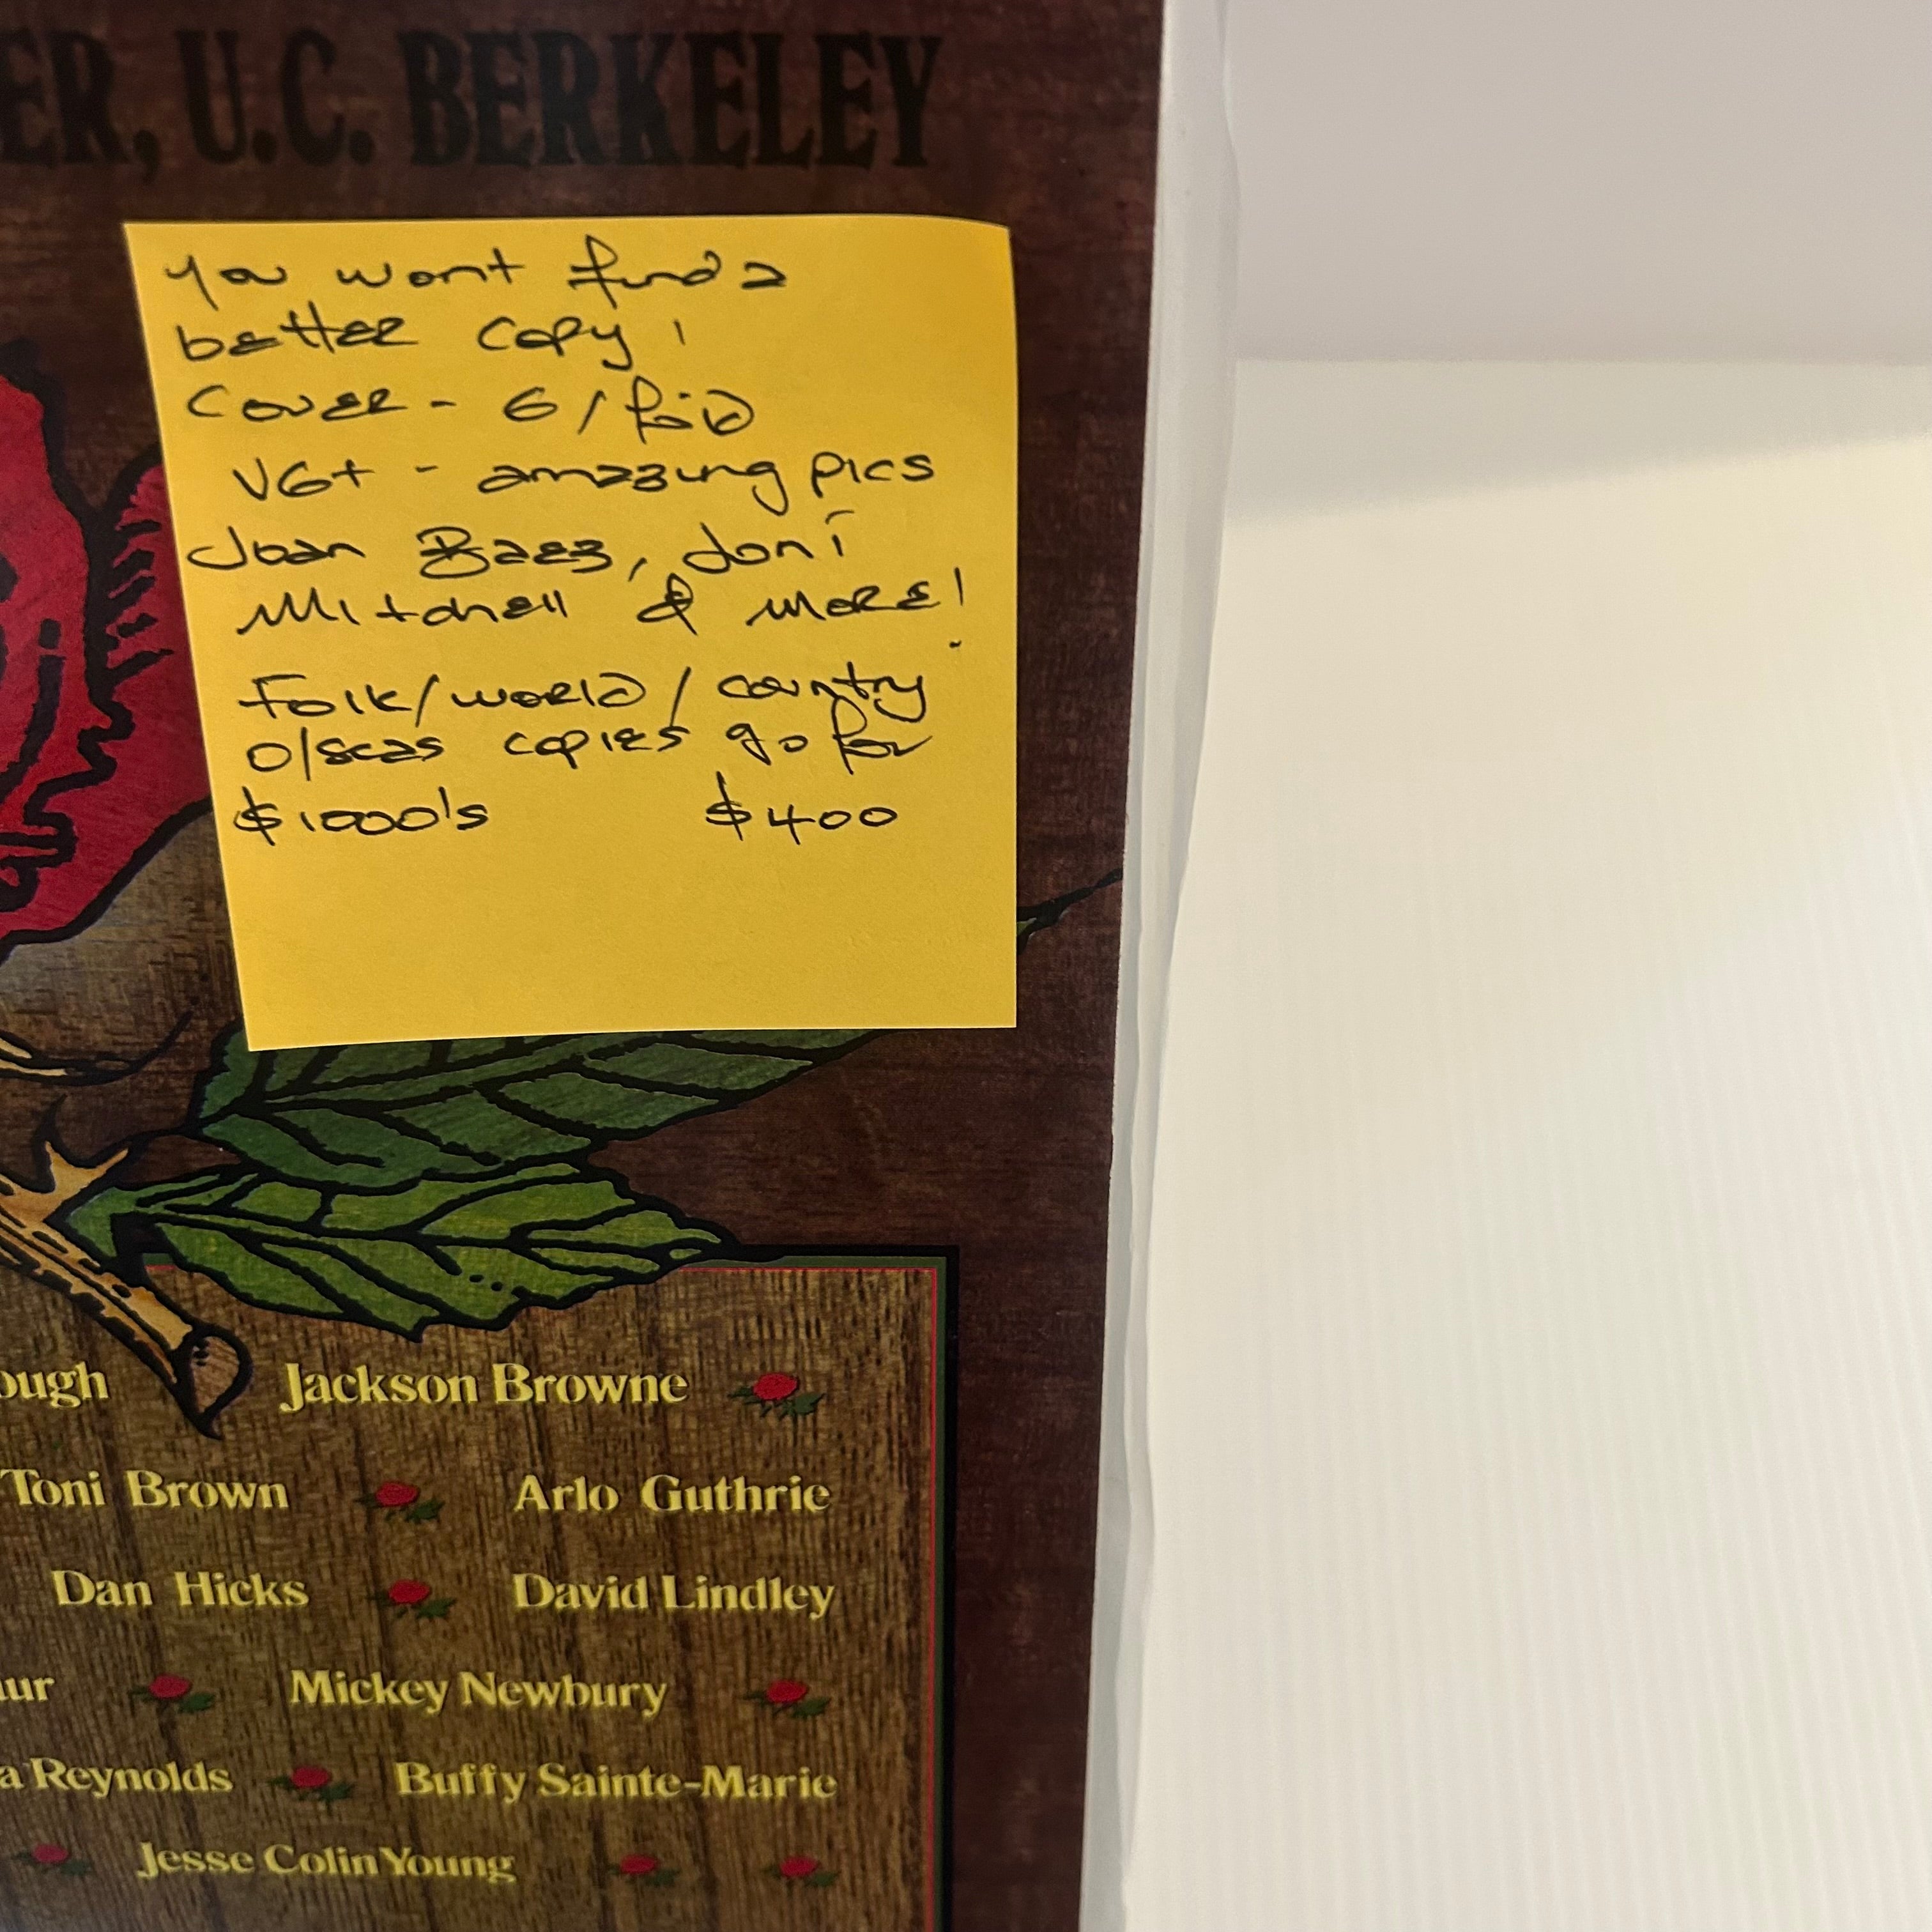 ER, U.C. BERKELEY
You wont find a
better copy!
Cover - G / fold
VG+ - amazing pics
Joan Baez, Joni
Mitchell & more!
Folk/world/country
O/seas copies go for
$1000's $400
ough Jackson Browne
Toni Brown Arlo Guthrie
Dan Hicks David Lindley
ur Mickey Newbury
a Reynolds Buffy Sainte-Marie
Jesse Colin Young